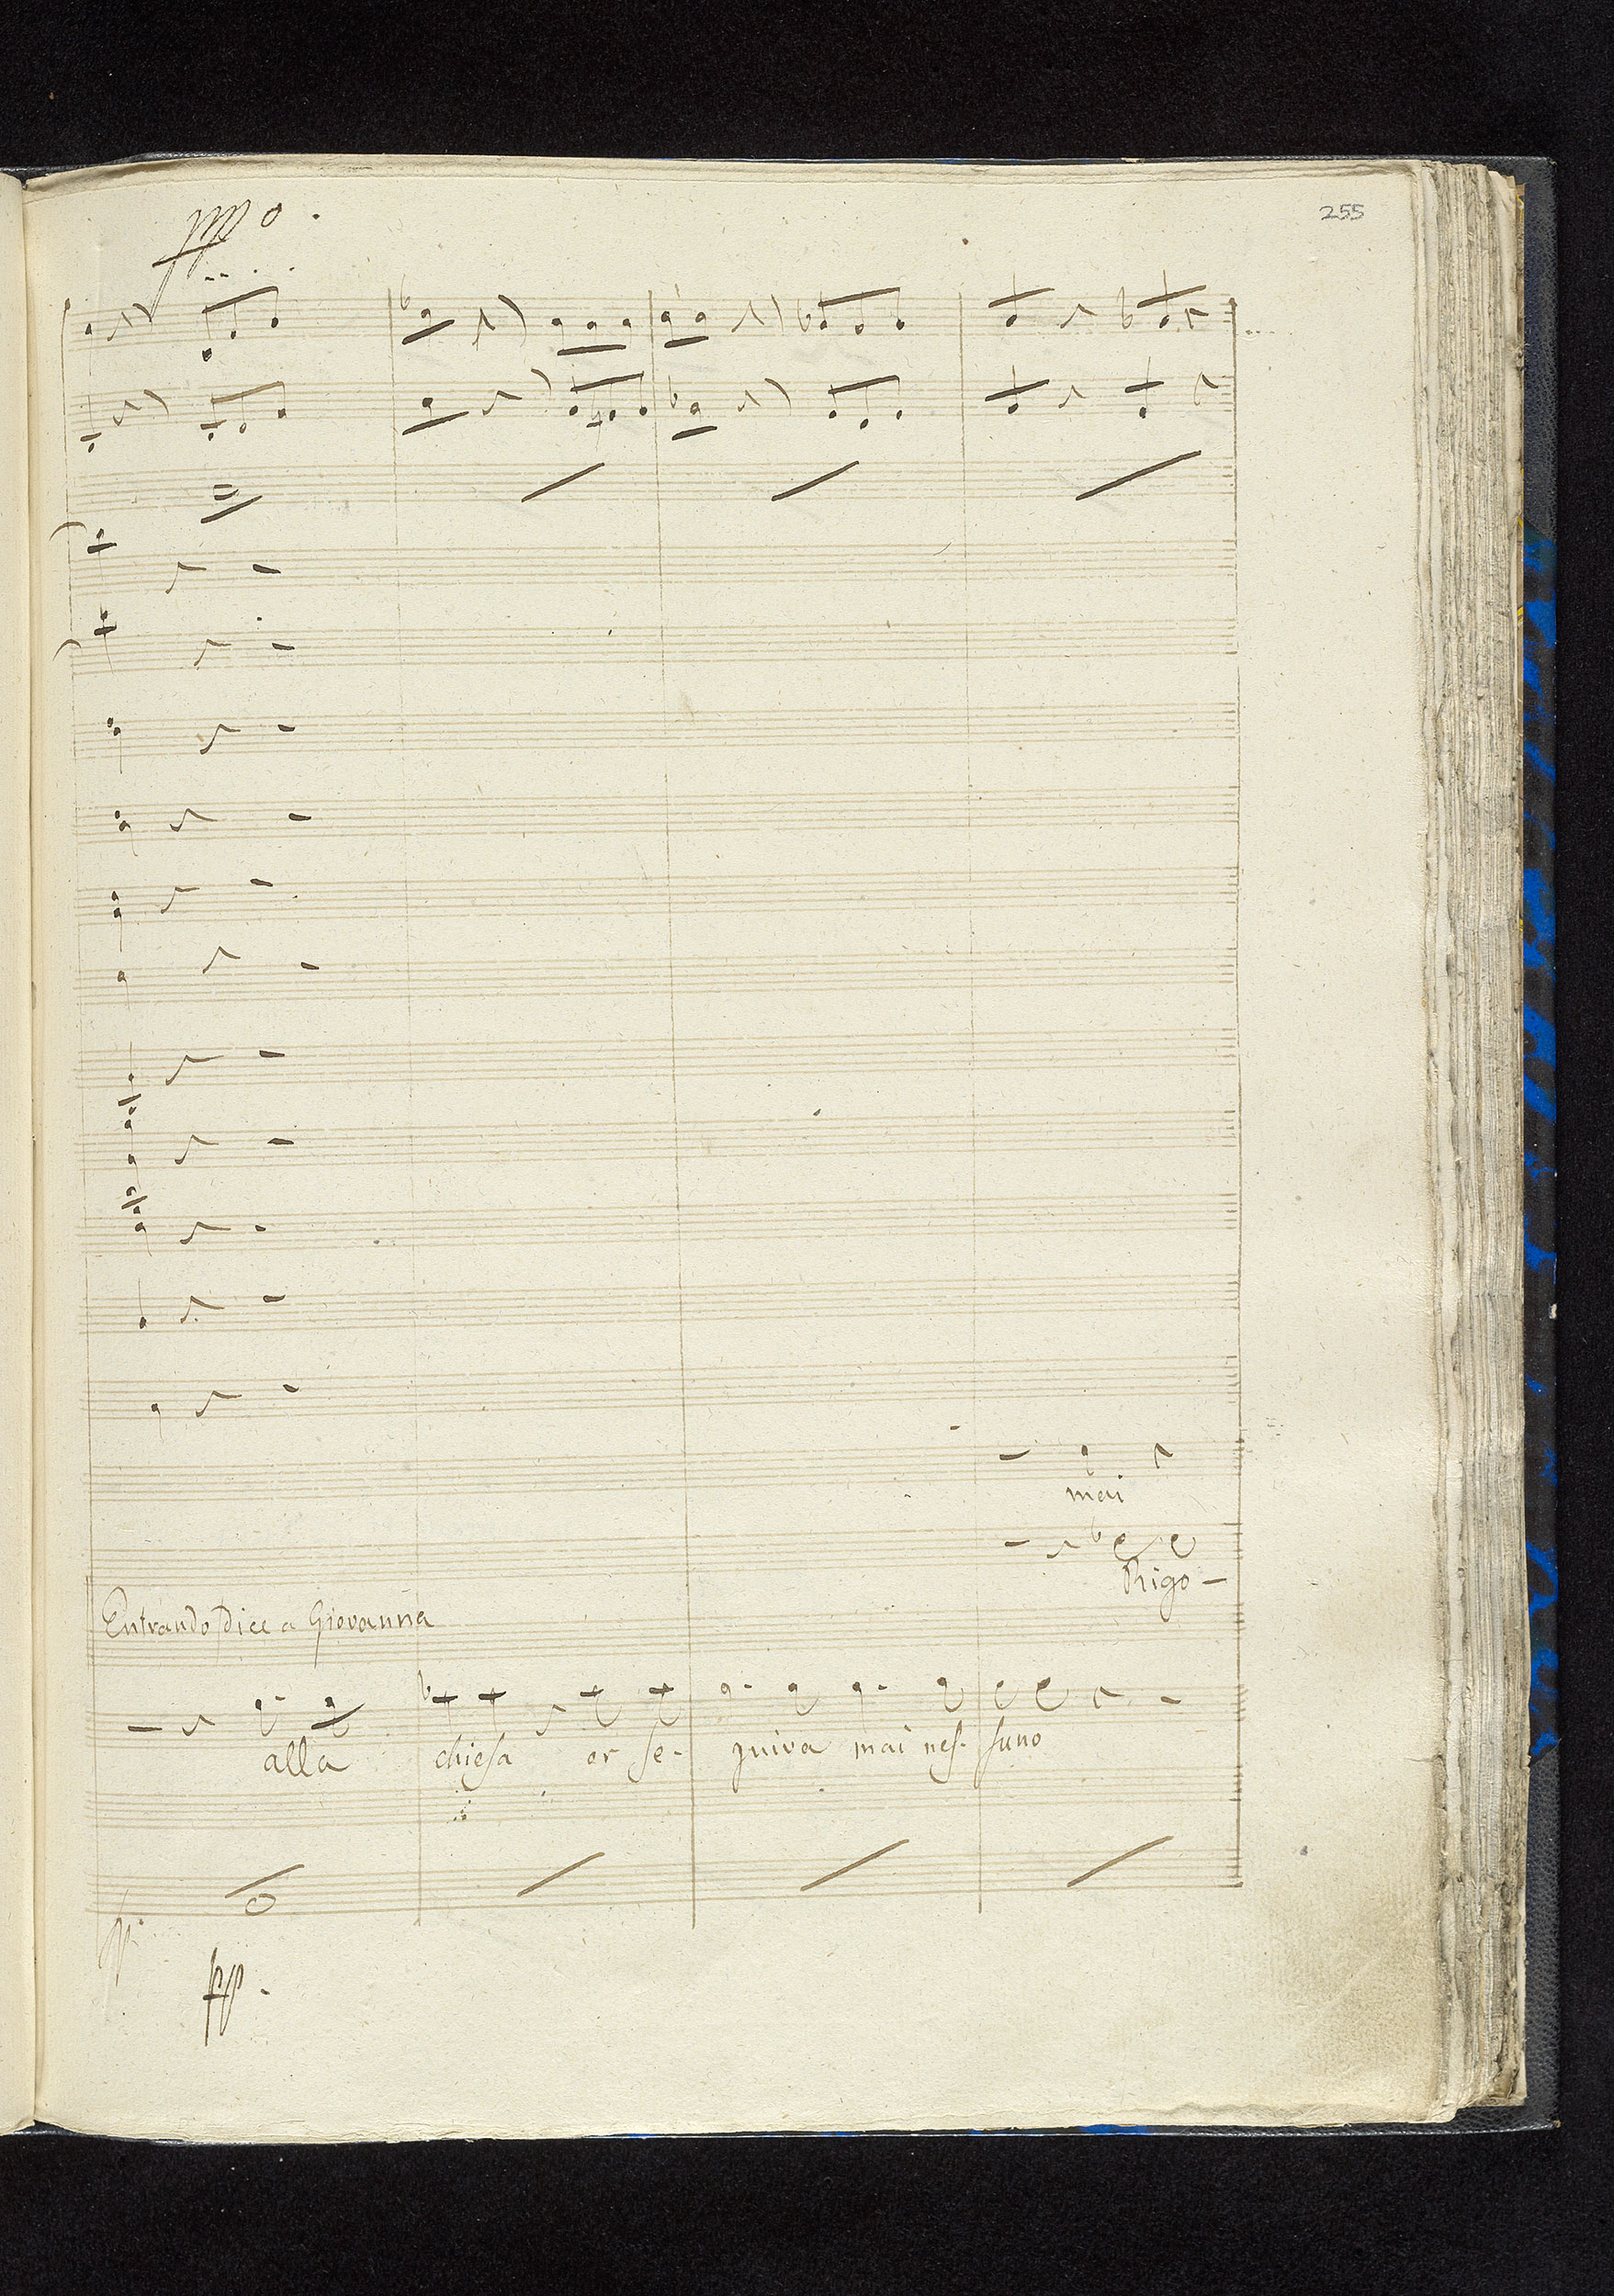 255
mai
Rigo-
Entrando dice a Giovanna
alla chiesa or se- guiva mai nes- suno
pp.